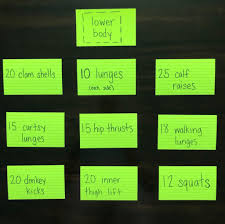 lower
body
20 clam shells
10 lunges
(each side)
25 calf
raises
15 curtsy
lunges
15 hip thrusts
18 walking
lunges
20 donkey
kicks
20 inner
thigh lift
12 squats